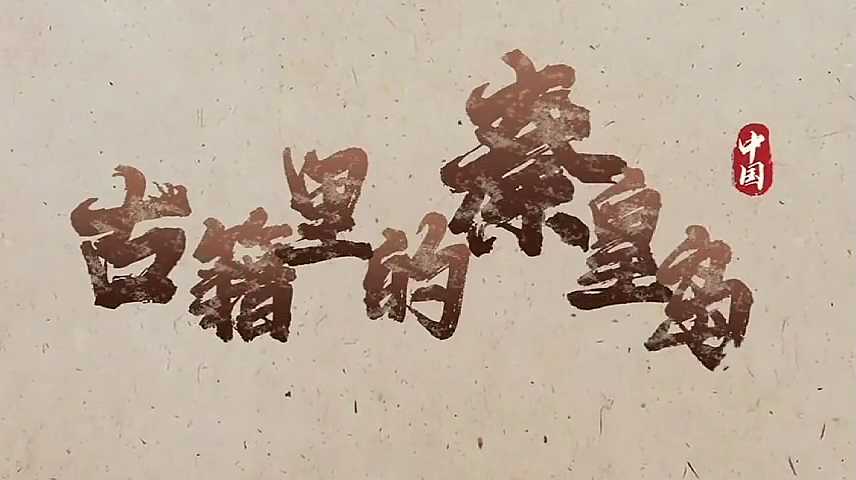 古籍里的秦皇岛
中国